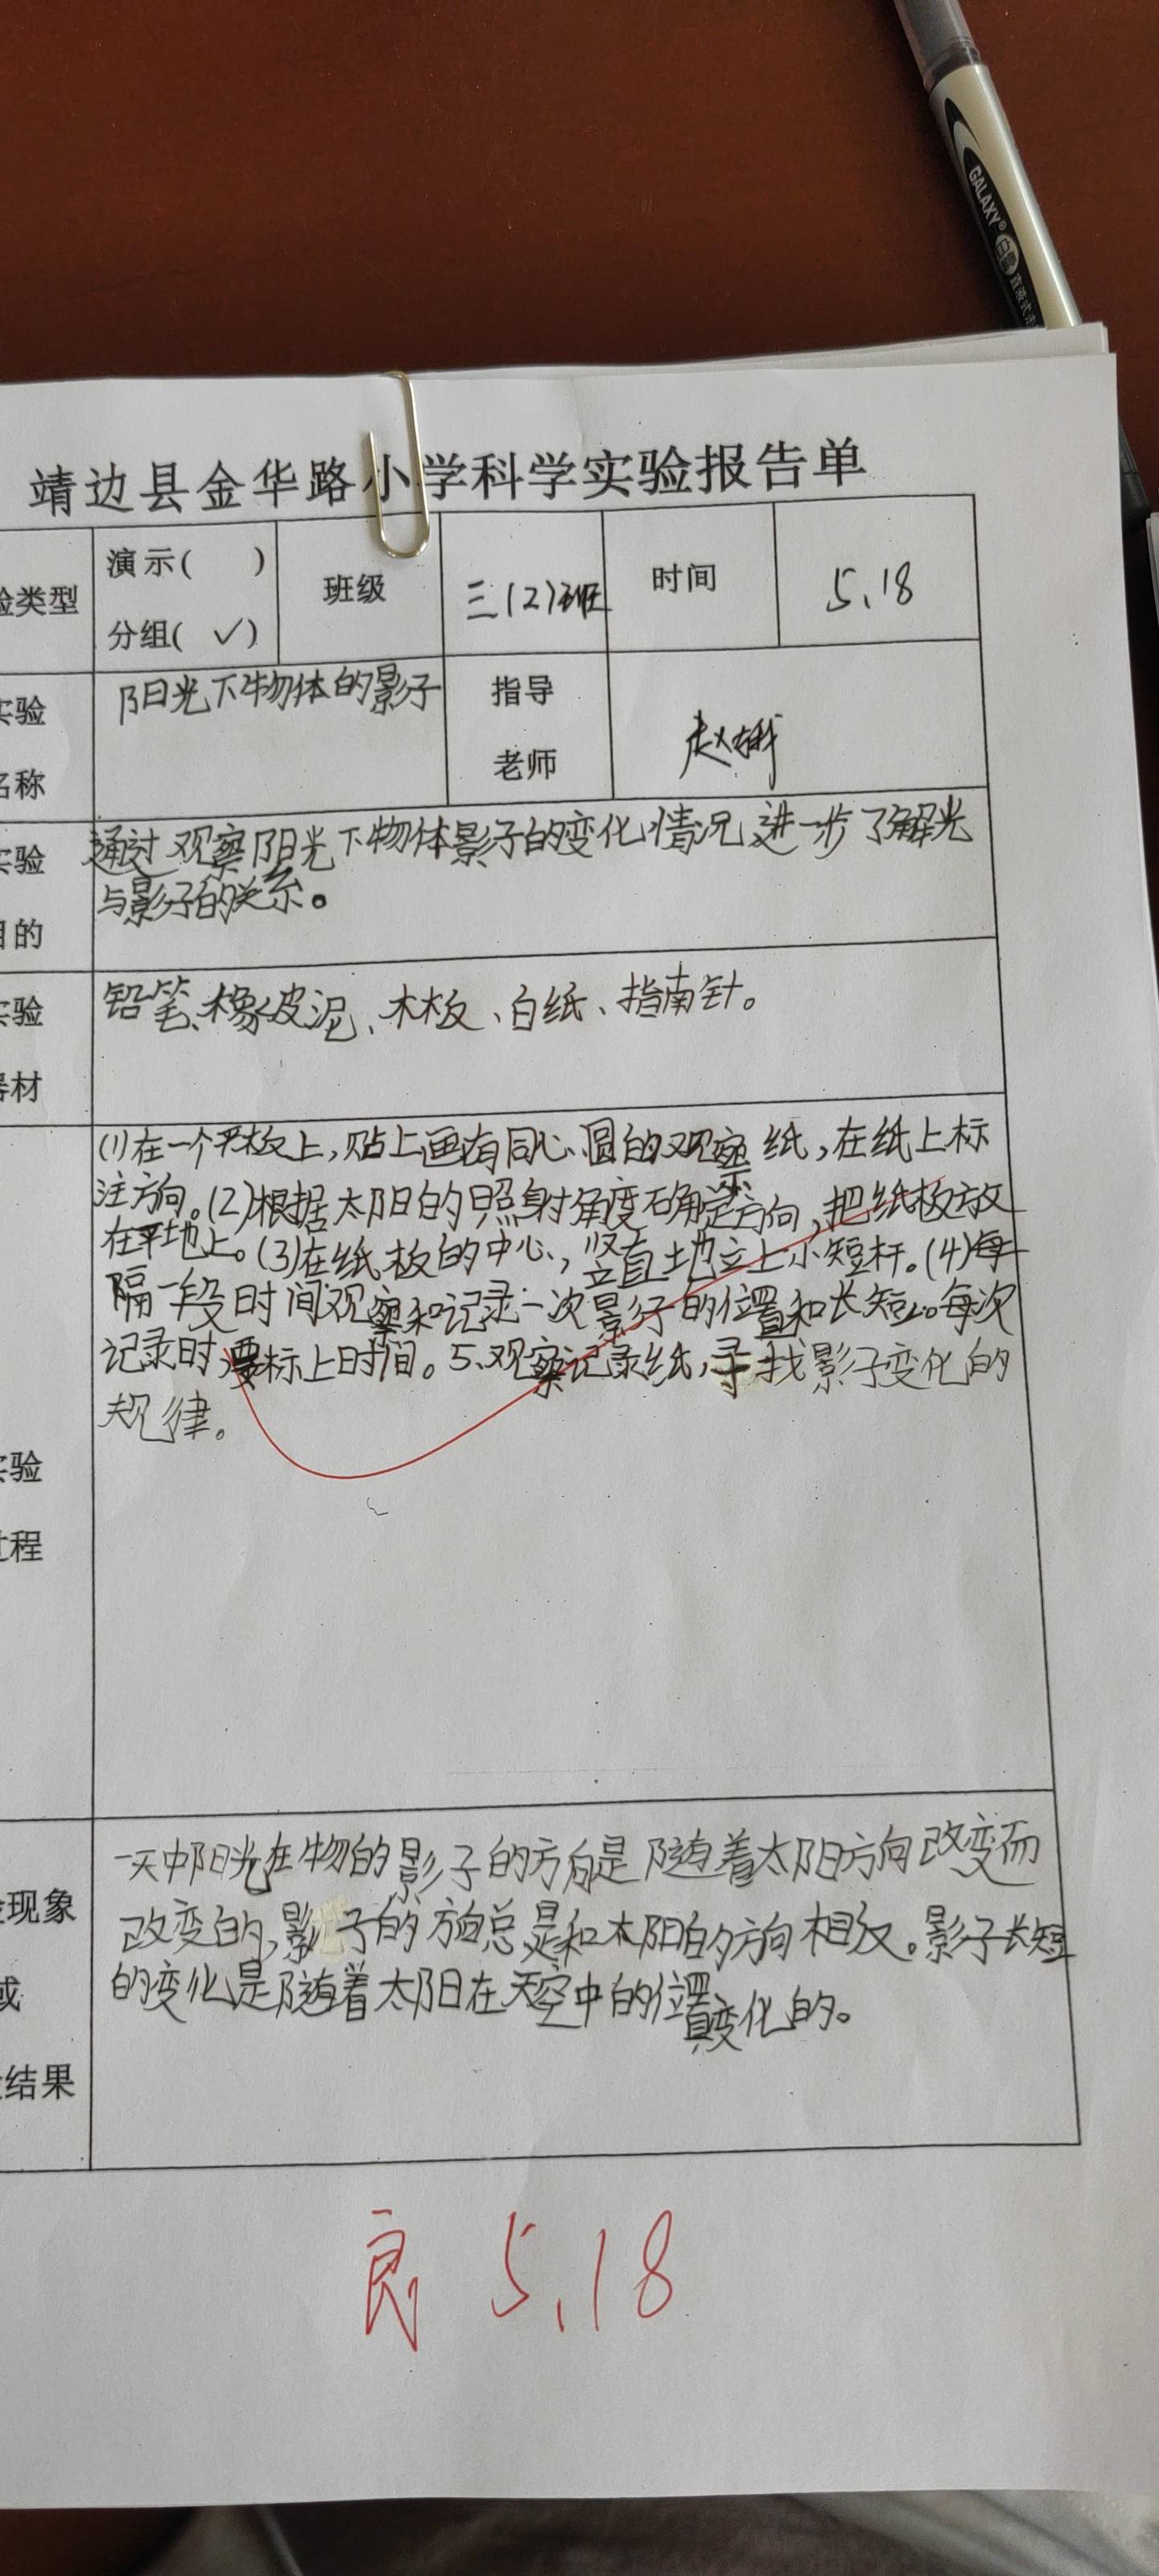 GALAXY® 白雪 直液式
靖边县金华路小学科学实验报告单
验类型
演示( )
分组( ✓)
班级
三(2)班
时间
5.18
实验
名称
阳光下物体的影子
指导
老师
赵
实验
目的
通过观察阳光下物体影子的变化情况,进一步了解光
与影子的关系。
实验
器材
铅笔、橡皮泥、木板、白纸、指南针。
实验
过程
(1)在一个平板上,贴上画有同心圆的观察纸,在纸上标
注方向。(2)根据太阳的照射角度确定方向,把纸板放
在平地上。(3)在纸板的中心,竖直地立上小短杆。(4)每
隔一段时间观察和记录一次影子的位置和长短。每次
记录时,要标上时间。5、观察记录纸,寻找影子变化的
规律。
验现象
或
验结果
一天中阳光在物的影子的方向是随着太阳方向改变而
改变的,影子的方向总是和太阳的方向相反。影子长短
的变化是随着太阳在天空中的位置变化的。
良 5.18